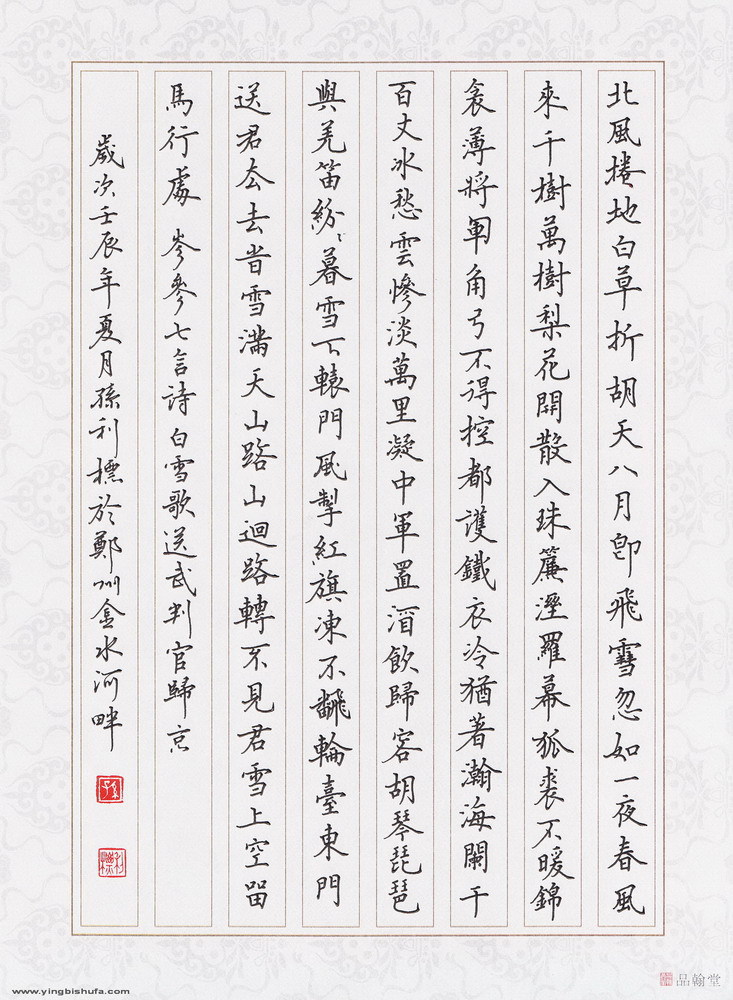 北風捲地白草折胡天八月即飛雪忽如一夜春風
來千樹萬樹梨花開散入珠簾溼羅幕狐裘不暖錦
衾薄將軍角弓不得控都護鐵衣冷猶著瀚海闌干
百丈冰愁雲慘淡萬里凝中軍置酒飲歸客胡琴琵琶
與羌笛紛紛暮雪下轅門風掣紅旗凍不飜輪臺東門
送君去去時雪滿天山路山迴路轉不見君雪上空留
馬行處 岑參七言詩白雪歌送武判官歸京
歲次壬辰年夏月孫利標於鄭州金水河畔
孫
利標
www.yingbishufa.com
品翰堂